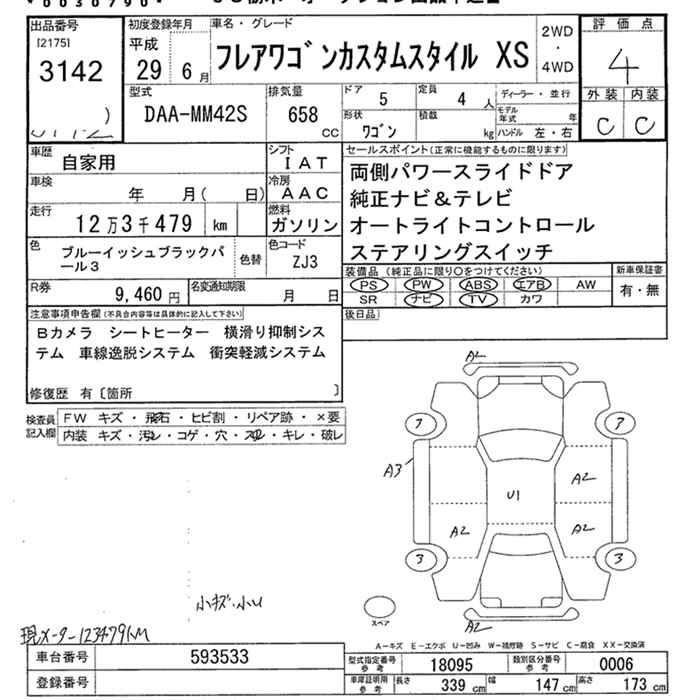 *0030790*
出品番号
[2175]
3142
初度登録年月
平成
29 6月
車名・グレード
フレアワゴンカスタムスタイル XS
2WD
・
4WD
評価点
4
外装 内装
C C
型式
DAA-MM42S
排気量
658
CC
ドア
5
定員
4 人
形状
ワゴン
積載
kg
ディーラー・並行
モデル年式 年
ハンドル 左・右
車歴
自家用
シフト
IAT
車検
年 月( 日)
冷房
AAC
走行
12万3千479 km
燃料
ガソリン
色
ブルーイッシュブラックパール3
色替
色コード
ZJ3
R券
9,460 円
名変通知期限
月 日
セールスポイント(正常に機能するものに限ります)
両側パワースライドドア
純正ナビ&テレビ
オートライトコントロール
ステアリングスイッチ
装備品(純正品に限り○をつけてください)
PS PW ABS エアB AW
SR ナビ TV カワ
新車保証書
有・無
後日品
注意事項申告欄(不具合内容等は具体的に記入して下さい)
Bカメラ シートヒーター 横滑り抑制シス
テム 車線逸脱システム 衝突軽減システム
修復歴 有〔箇所 〕
検査員
記入欄
FW キズ・飛石・ヒビ割・リペア跡・×要
内装 キズ・汚レ・コゲ・穴・スレ・キレ・破レ
A2
7 7
A3
U1
A2
A2 A2
3 3
A2
スペア
小キズ・小U
現メーター123479KM
A-キズ E-エクボ U-凹み W-補修跡 S-サビ C-腐食 XX-交換済
車台番号 593533
登録番号
型式指定番号 参考 18095
類別区分番号 参考 0006
車庫証明用 参考
長さ 339 cm 幅 147 cm 高さ 173 cm